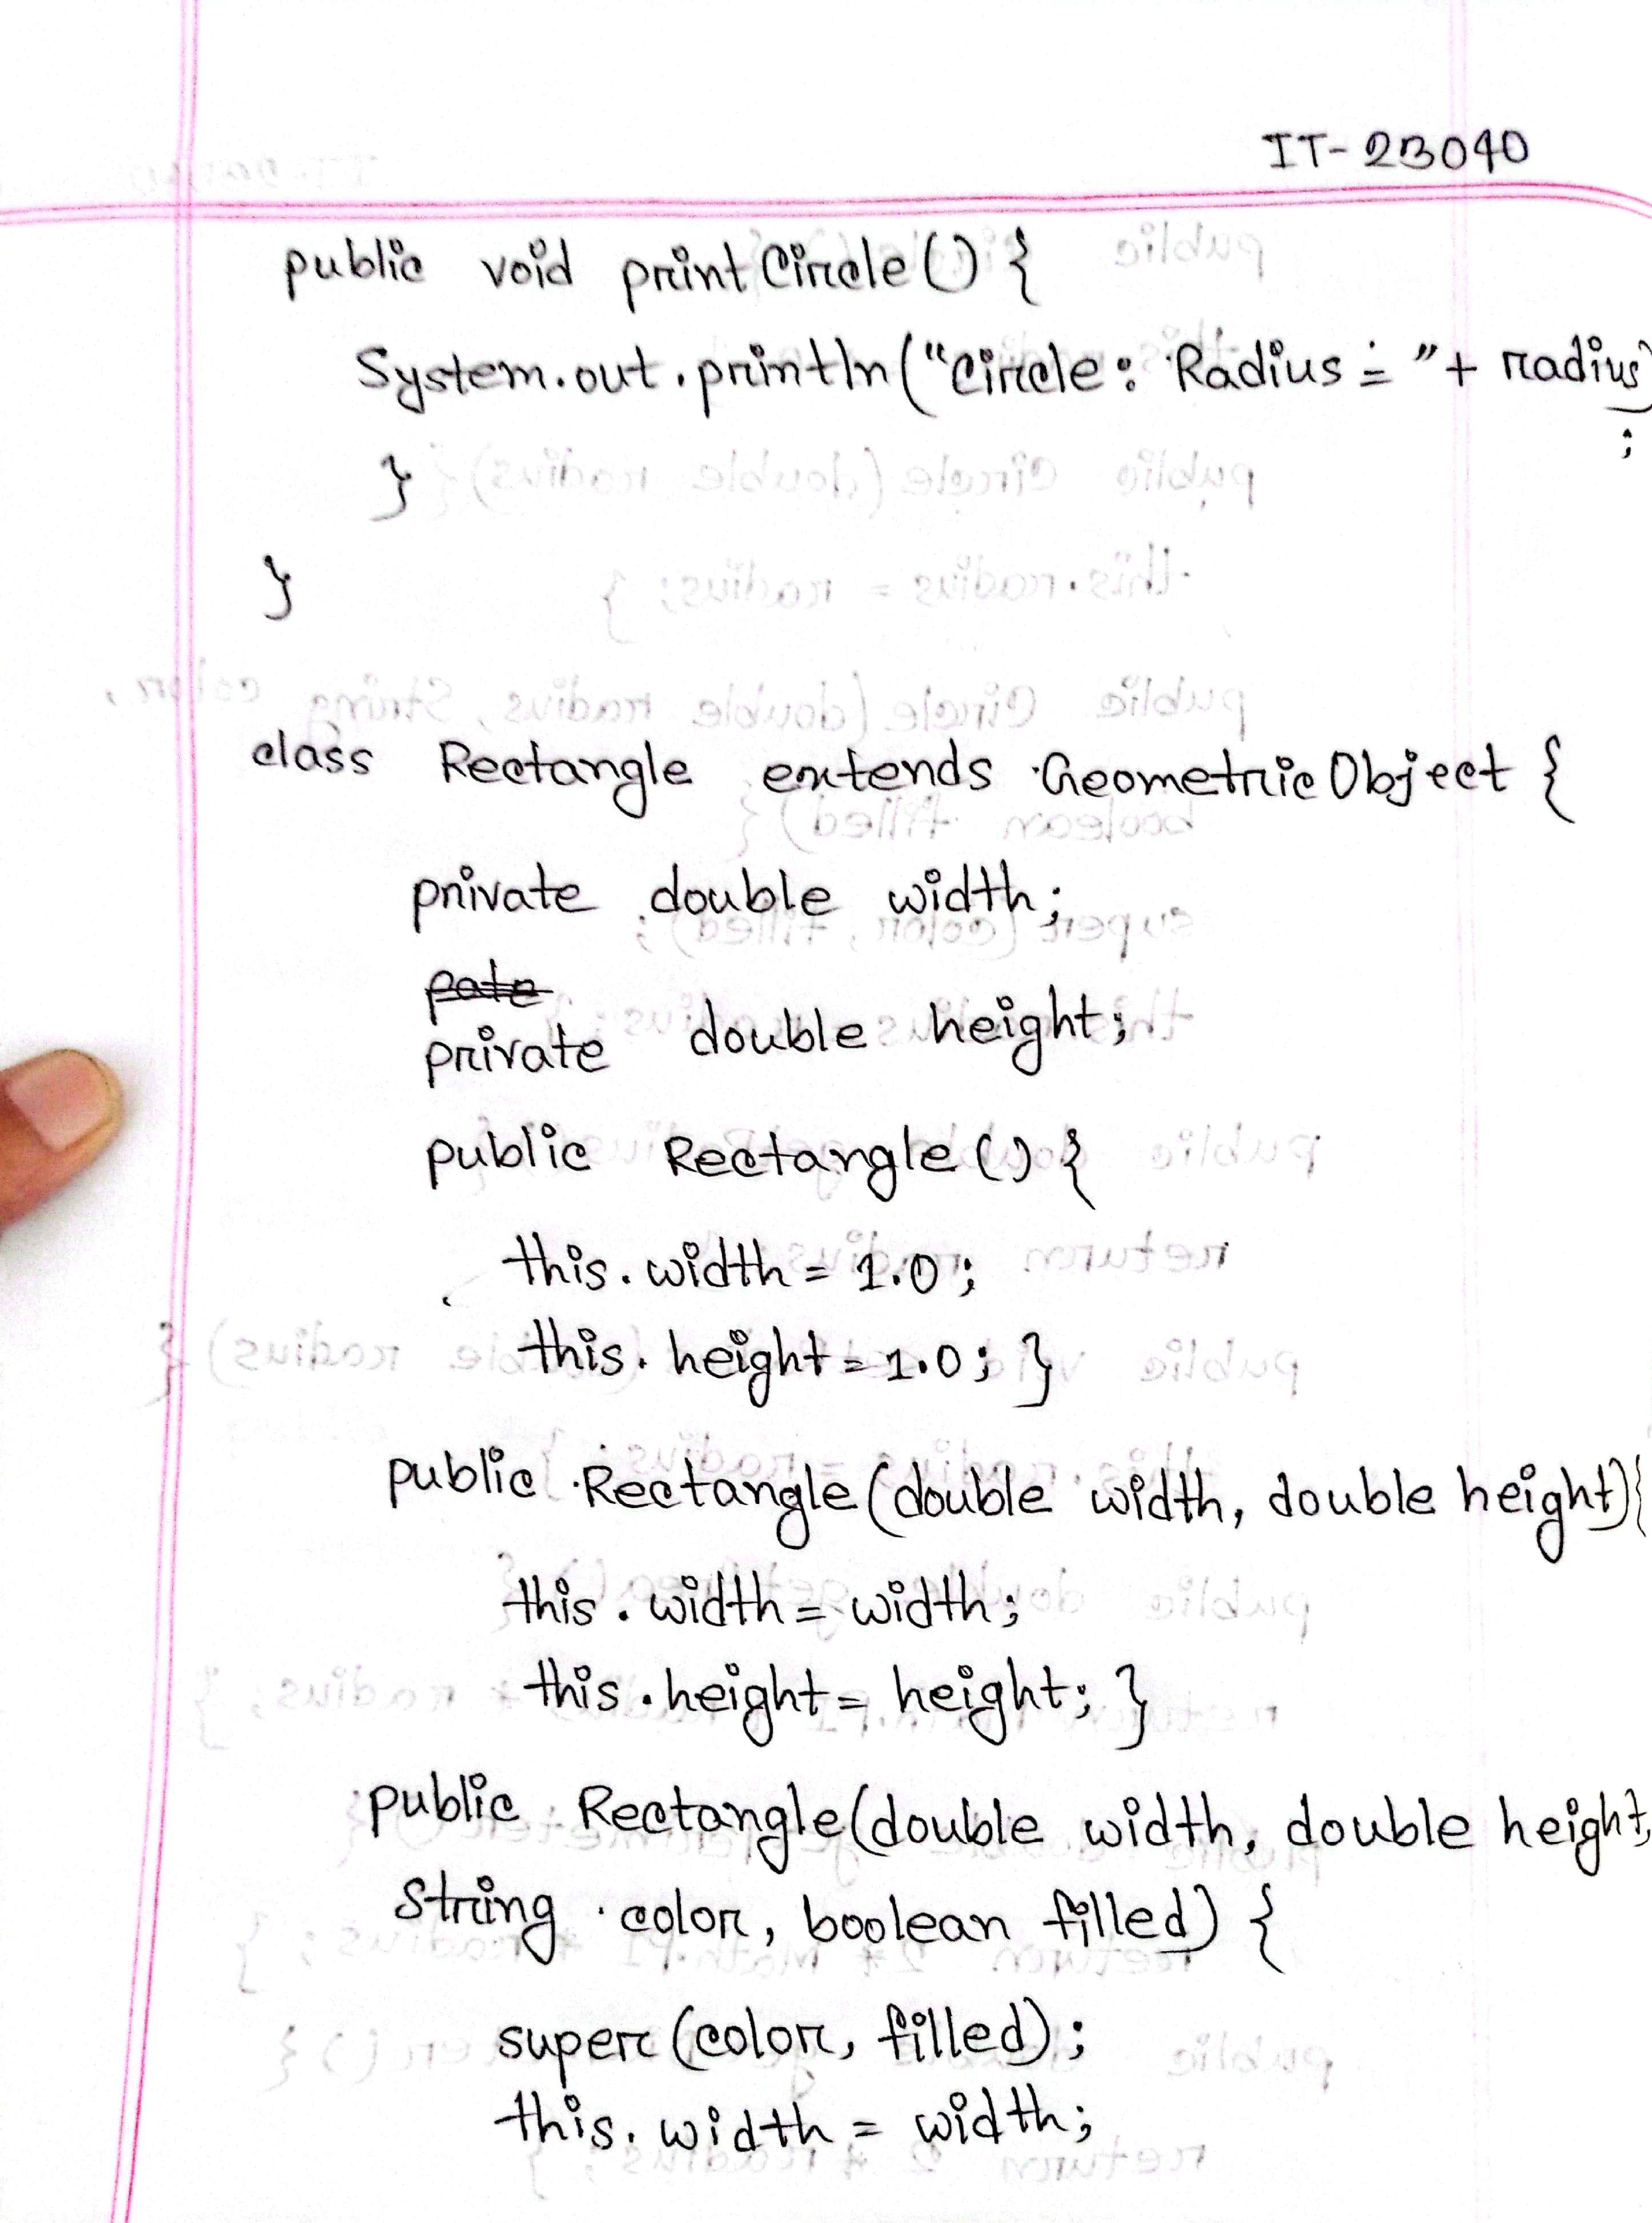 IT-23040
public void printCircle() {
System.out.println("Circle: Radius = "+ radius)
;
}
}
class Rectangle extends GeometricObject {
private double width;
private double height;
public Rectangle() {
this.width = 1.0;
this.height = 1.0; }
public Rectangle(double width, double height){
this.width = width;
this.height = height; }
public Rectangle(double width, double height,
String color, boolean filled) {
super(color, filled);
this.width = width;